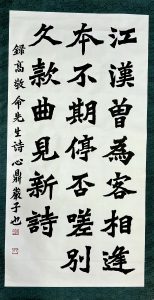 江漢曾為客相逢
本不期停否嗟別
久款曲見新詩
錄高敬命先生詩 心鼎 嚴子也